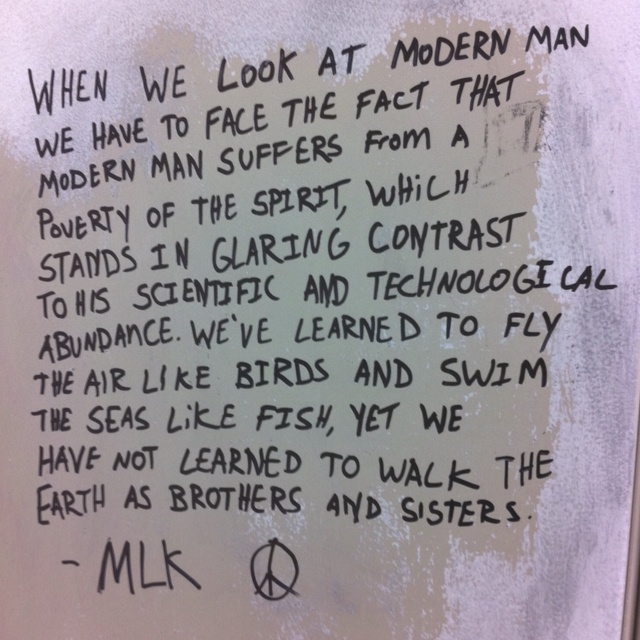 WHEN WE LOOK AT MODERN MAN
WE HAVE TO FACE THE FACT THAT
MODERN MAN SUFFERS FROM A
POVERTY OF THE SPIRIT, WHICH
STANDS IN GLARING CONTRAST
TO HIS SCIENTIFIC AND TECHNOLOGICAL
ABUNDANCE. WE'VE LEARNED TO FLY
THE AIR LIKE BIRDS AND SWIM
THE SEAS LIKE FISH, YET WE
HAVE NOT LEARNED TO WALK THE
EARTH AS BROTHERS AND SISTERS.
- MLK